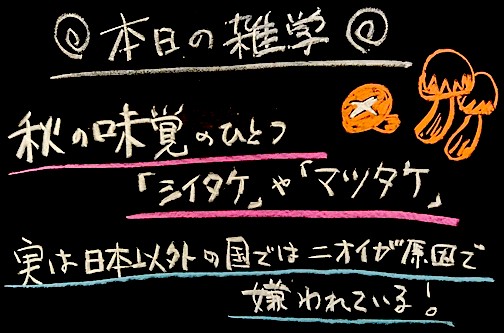 本日の雑学
秋の味覚のひとつ
「シイタケ」や「マツタケ」
実は日本以外の国ではニオイが原因で
嫌われている!